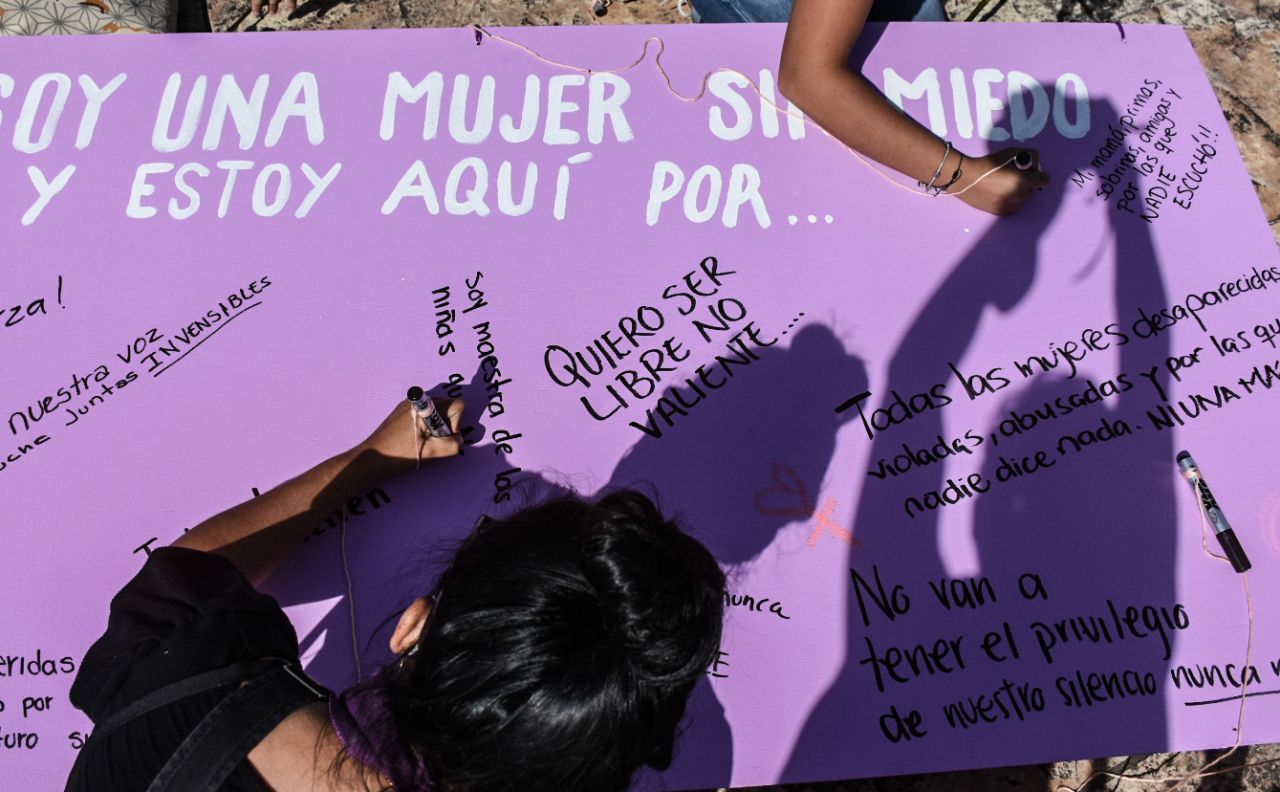 SOY UNA MUJER SIN MIEDO
Y ESTOY AQUÍ POR...
Mi mamá, primas,
sobrinas, amigas y
por las que
NADIE
ESCUCHÓ!!
nuestra voz
juntas INVENSIBLES
Soy maestra de las
niñas
QUIERO SER
LIBRE NO
VALIENTE....
Todas las mujeres desaparecidas
violadas, abusadas y por las que
nadie dice nada. NI UNA MÁS
nunca
No van a
tener el privilegio
de nuestro silencio nunca
por